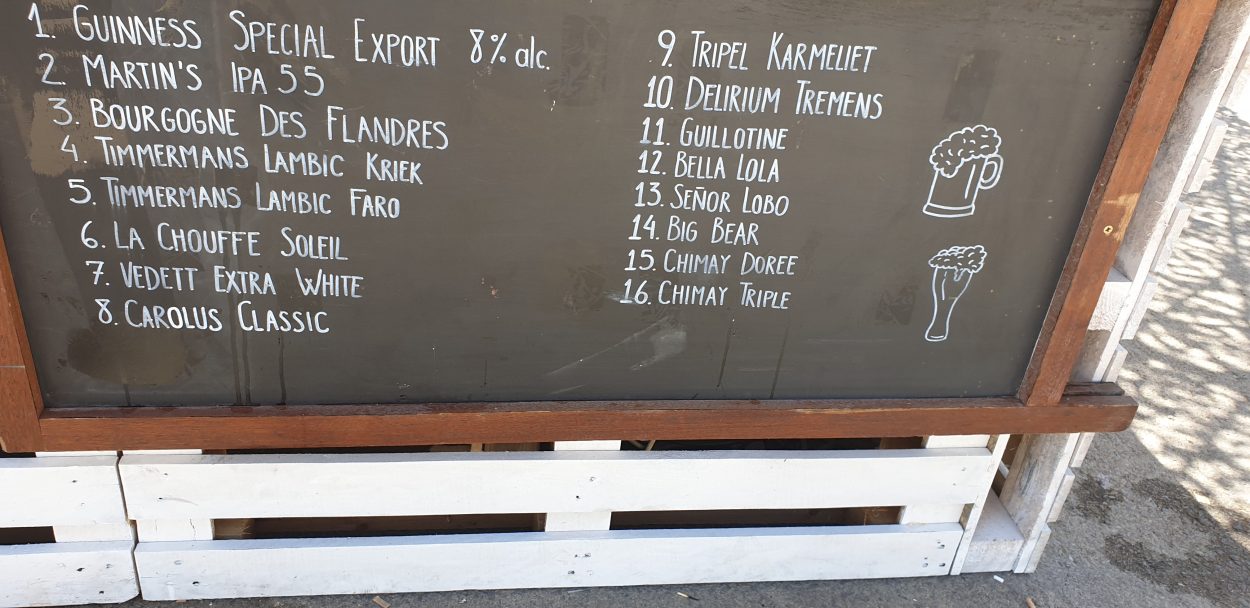 1. GUINNESS SPECIAL EXPORT 8% alc.
2. MARTIN'S IPA 55
3. BOURGOGNE DES FLANDRES
4. TIMMERMANS LAMBIC KRIEK
5. TIMMERMANS LAMBIC FARO
6. LA CHOUFFE SOLEIL
7. VEDETT EXTRA WHITE
8. CAROLUS CLASSIC
9. TRIPEL KARMELIET
10. DELIRIUM TREMENS
11. GUILLOTINE
12. BELLA LOLA
13. SEÑOR LOBO
14. BIG BEAR
15. CHIMAY DOREE
16. CHIMAY TRIPLE